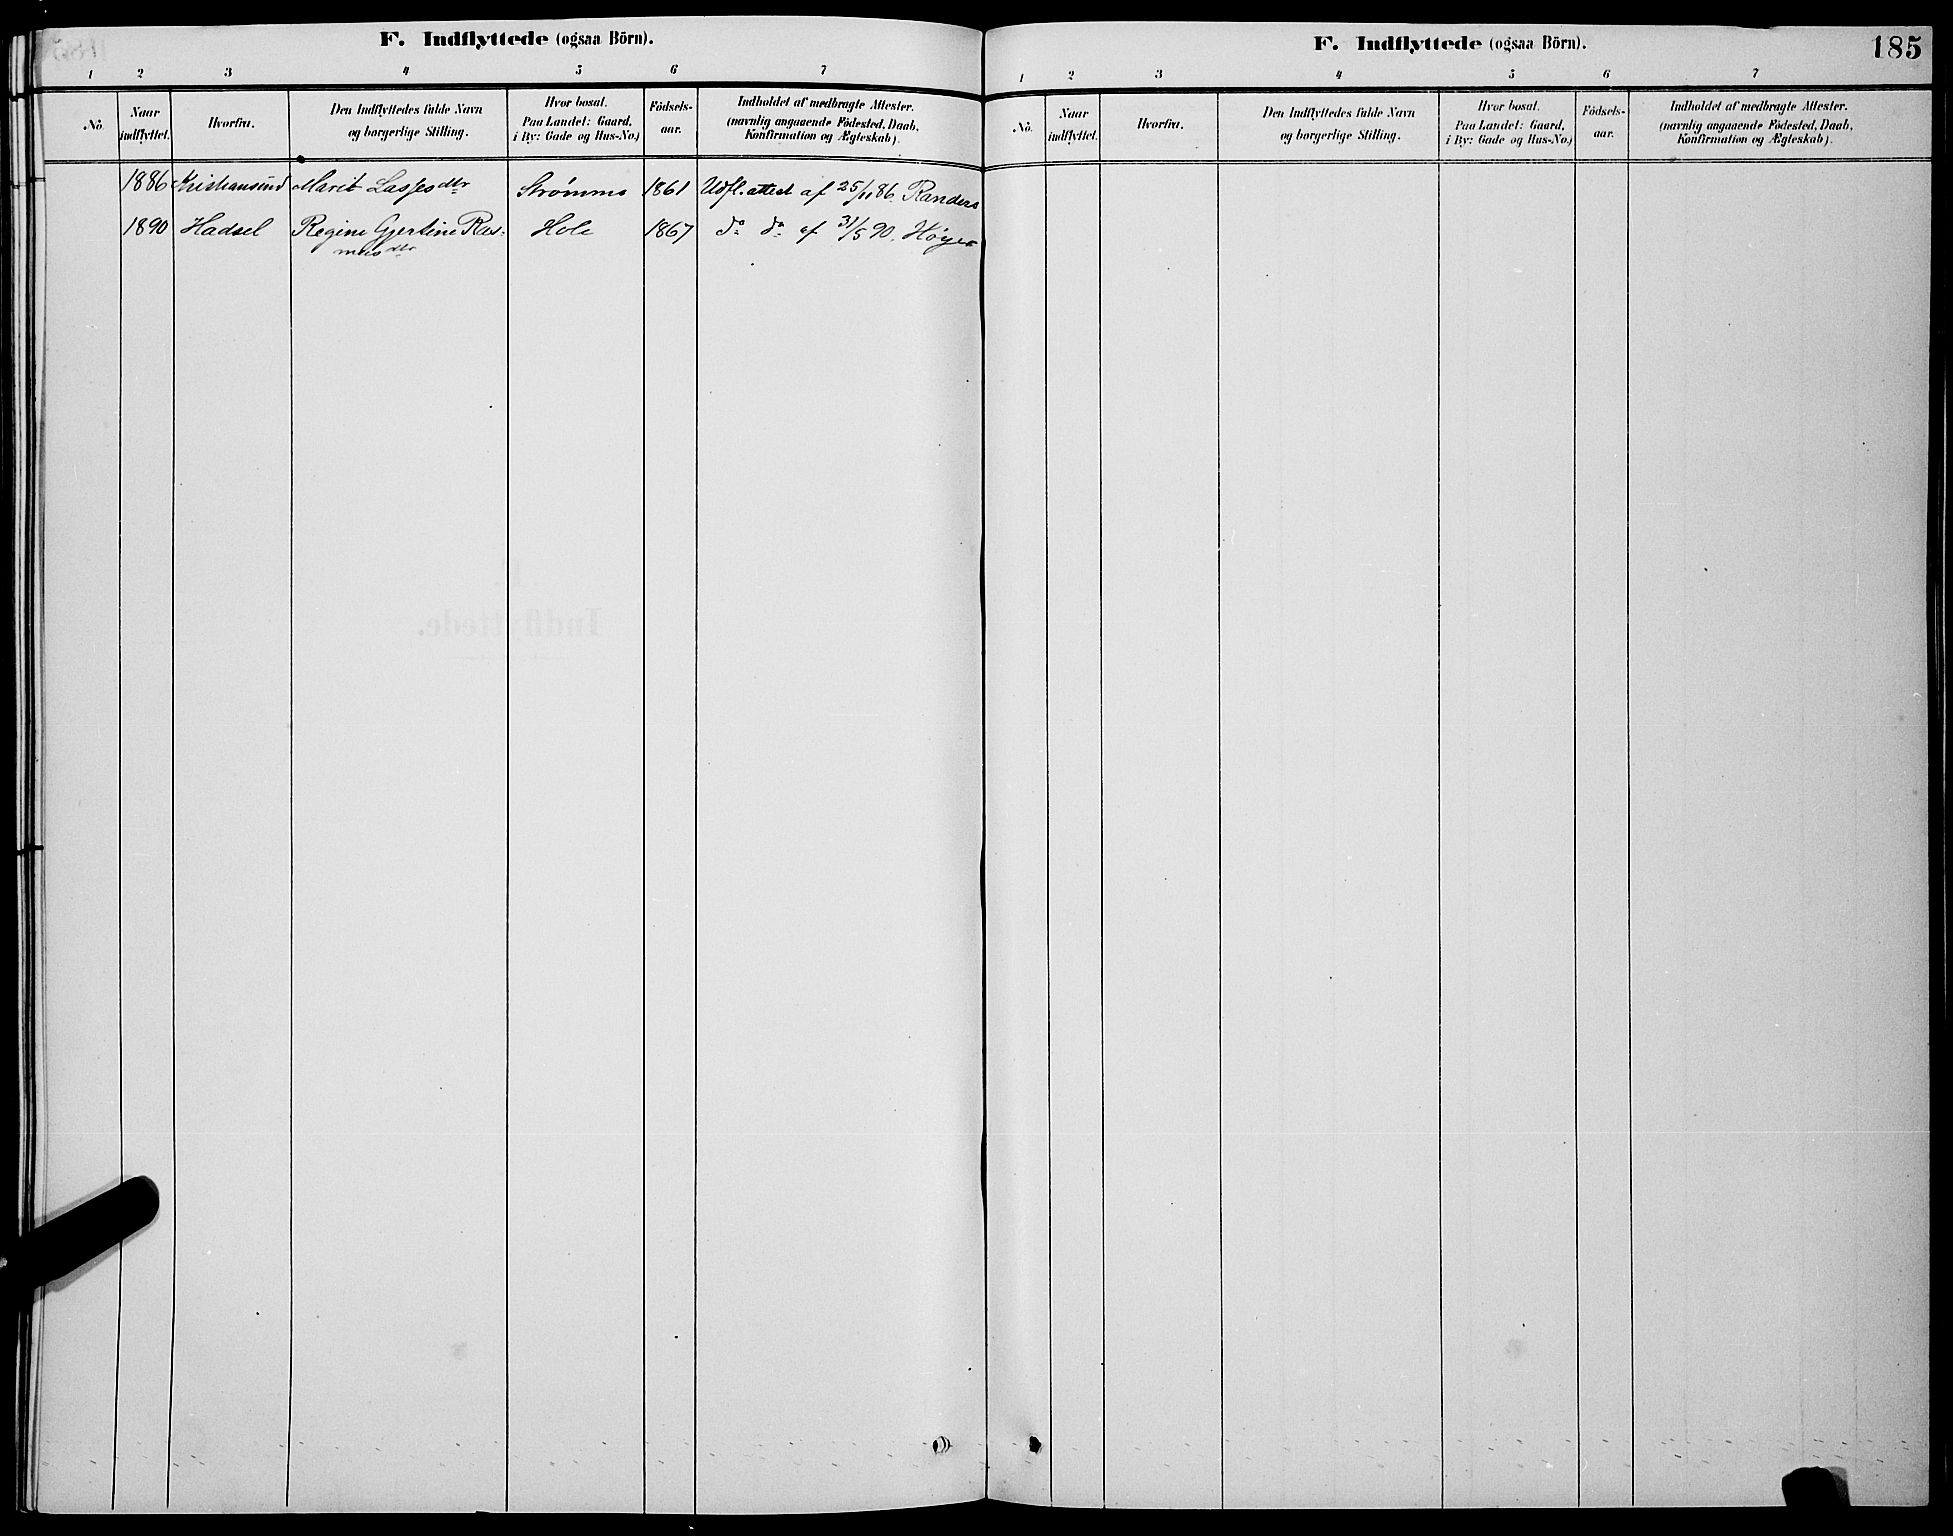 F. Indflyttede (ogsaa Börn).
1 2 3 4 5 6 7
No. Naar indflyttet. Hvorfra. Den Indflyttedes fulde Navn og borgerlige Stilling. Hvor bosat. Paa Landet: Gaard, i By: Gade og Hus-No.) Födsels-aar. Indholdet af medbragte Attester. (navnlig angaaende Födested, Daab, Konfirmation og Ægteskab).
1886 Kristiansund Marit Lasses dtr Strømme 1861 Udfl. attest af 25/11 86. Randers
1890 Hadsel Regine Gjertine Ras- Hole 1867 do do af 31/5 90. Høyer
mus dtr
F. Indflyttede (ogsaa Börn).
185
1 2 3 4 5 6 7
No. Naar indflyttet. Hvorfra. Den Indflyttedes fulde Navn og borgerlige Stilling. Hvor bosat. Paa Landet: Gaard, i By: Gade og Hus-No.) Födsels-aar. Indholdet af medbragte Attester. (navnlig angaaende Födested, Daab, Konfirmation og Ægteskab).